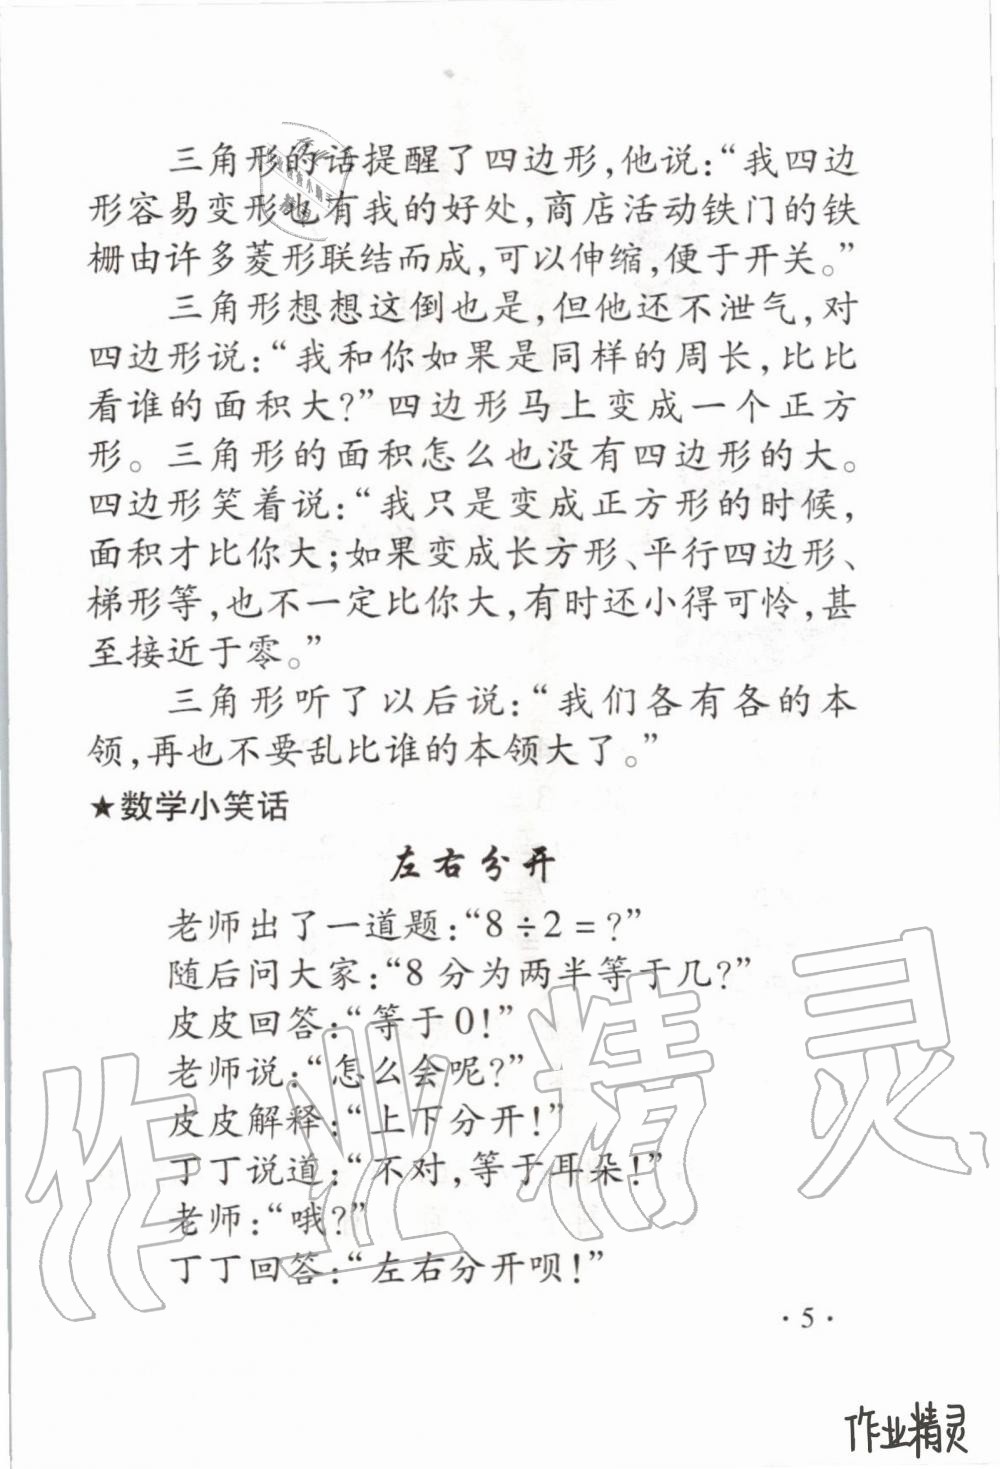 三角形的话提醒了四边形,他说:“我四边
形容易变形也有我的好处,商店活动铁门的铁
栅由许多菱形联结而成,可以伸缩,便于开关。”
三角形想想这倒也是,但他还不泄气,对
四边形说:“我和你如果是同样的周长,比比
看谁的面积大?”四边形马上变成一个正方
形。三角形的面积怎么也没有四边形的大。
四边形笑着说:“我只是变成正方形的时候,
面积才比你大;如果变成长方形、平行四边形、
梯形等,也不一定比你大,有时还小得可怜,甚
至接近于零。”
三角形听了以后说:“我们各有各的本
领,再也不要乱比谁的本领大了。”
★数学小笑话
左右分开
老师出了一道题:“8÷2=?”
随后问大家:“8分为两半等于几?”
皮皮回答:“等于0!”
老师说:“怎么会呢?”
皮皮解释:“上下分开!”
丁丁说道:“不对,等于耳朵!”
老师:“哦?”
丁丁回答:“左右分开呗!”
·5·
作业精灵
作业精灵